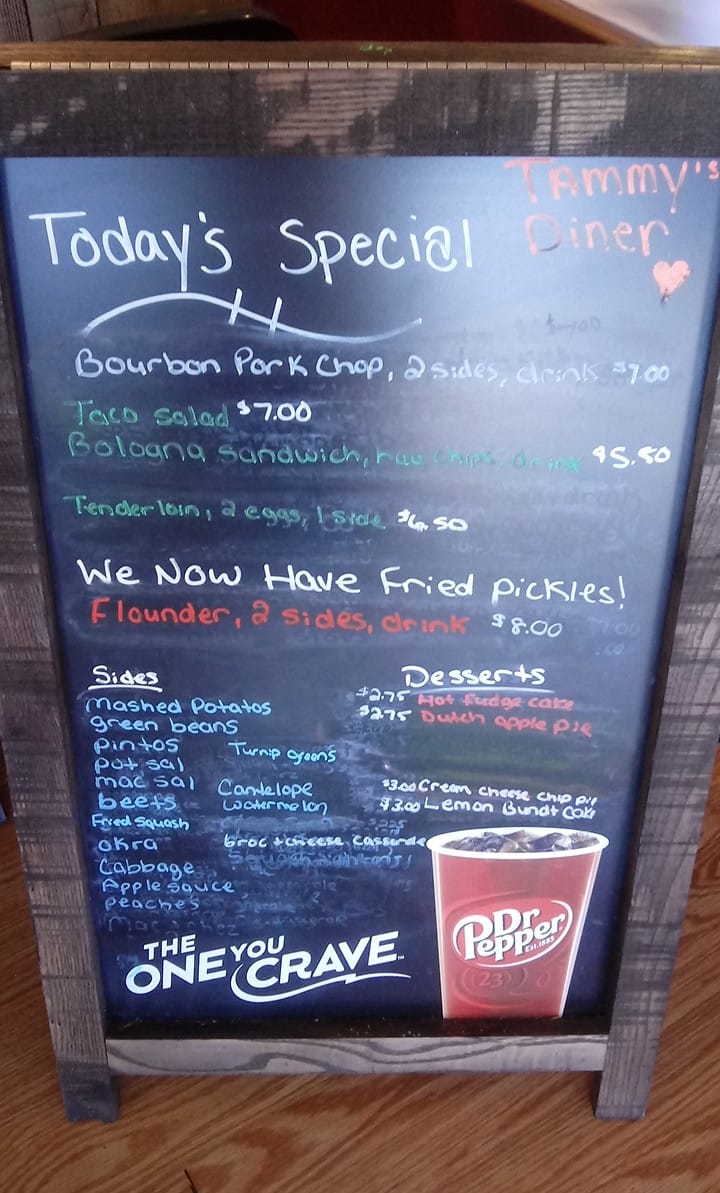 TAMMY'S
Diner
Today's Special
Bourbon Pork Chop, 2 sides, drink $7.00
Taco salad $7.00
Bologna sandwich, chips, drink $5.50
Tenderloin, 2 eggs, 1 side $6.50
We Now Have Fried Pickles!
Flounder, 2 sides, drink $8.00
Sides
Mashed Potatos
green beans
pintos
Turnip greens
pot sal
mac sal
Cantelope
beets
Watermelon
Fried Squash
okra
broc + cheese casserole
Cabbage
Apple sauce
peaches
Desserts
$2.75 Hot fudge cake
$2.75 Dutch apple pie
$3.00 Cream cheese chip pie
$3.00 Lemon Bundt Cake
THE ONE YOU CRAVE™
Dr Pepper
Est. 1885
23